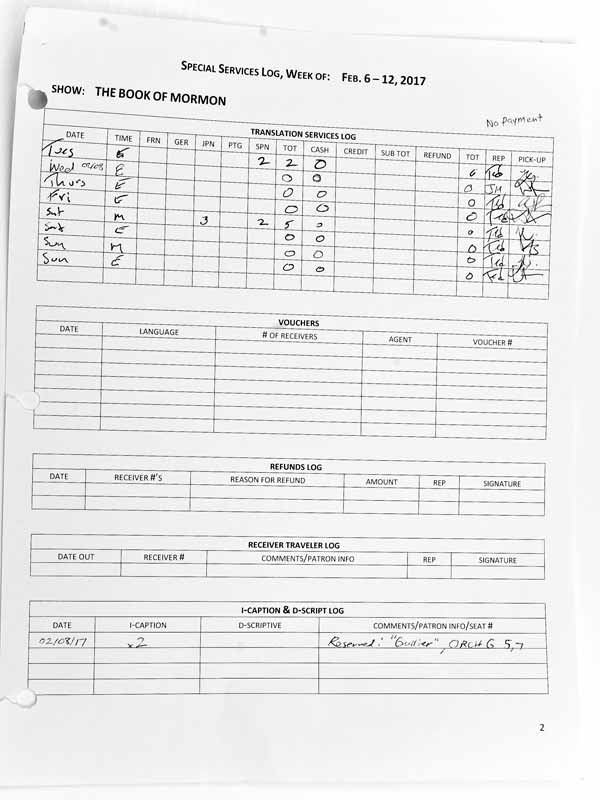 SPECIAL SERVICES LOG, WEEK OF: FEB. 6 – 12, 2017
SHOW: THE BOOK OF MORMON
No Payment
TRANSLATION SERVICES LOG
DATE TIME FRN GER JPN PTG SPN TOT CASH CREDIT SUB TOT REFUND TOT REP PICK-UP
Tues E 2 2 0
Wed 02/08 E 0 0
Thurs E 0 0 0 JH
Fri E 0 0 0
Sat M 3 2 5 0
Sat E 0 0
Sun M 0 0 0
Sun E 0 0 0
VOUCHERS
DATE LANGUAGE # OF RECEIVERS AGENT VOUCHER #
REFUNDS LOG
DATE RECEIVER #'S REASON FOR REFUND AMOUNT REP SIGNATURE
RECEIVER TRAVELER LOG
DATE OUT RECEIVER # COMMENTS/PATRON INFO REP SIGNATURE
I-CAPTION & D-SCRIPT LOG
DATE I-CAPTION D-SCRIPTIVE COMMENTS/PATRON INFO/SEAT #
02/08/17 x2 Reserved: ORCH G 5,7
2